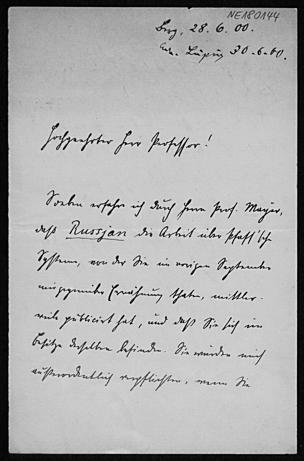 NE180144
Brg, 28. 6. 00.
Leipzig 30-6-00.
Hochgeehrter Herr Professor!
Soeben erfahre ich durch Herrn Prof. Mayer,
daß Russjan die Arbeit über Pfaff'sche
Systeme, von der Sie im vorigen September
mir gegenüber Erwähnung thaten, mittler-
weile publicirt hat, und daß Sie sich im
Besitze derselben befinden. Sie würden mich
außerordentlich verpflichten, wenn Sie